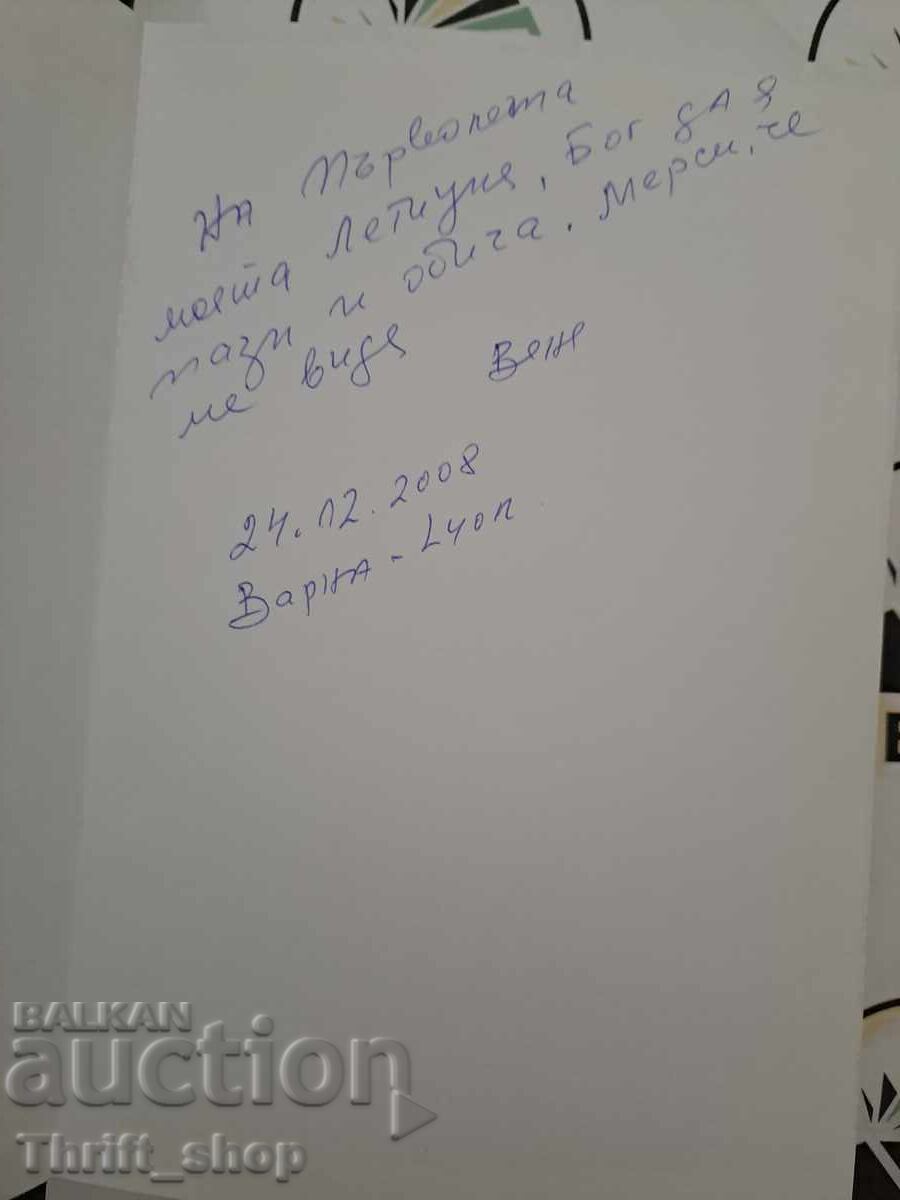 На Първолета
моята Летиция, Бог да я
пази и обича. Мерси, че
ме видя Вени
24.12.2008
Варна - Lyon
BALKAN
auction
Thrift_shop